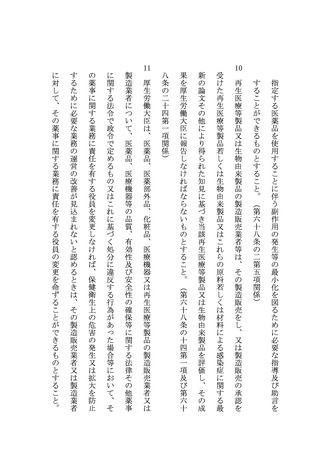 指定する医薬品を使用することに伴う副作用の発生等の最小化を図るために必要な指導及び助言を
することができるものとすること。（第六十八条の二第五項関係）
10　再生医療等製品又は生物由来製品の製造販売業者等は、その製造販売をし、又は製造販売の承認を
受けた再生医療等製品若しくは生物由来製品又はこれらの原料若しくは材料による感染症に関する最
新の論文その他により得られた知見に基づき当該再生医療等製品又は生物由来製品を評価し、その成
果を厚生労働大臣に報告しなければならないものとすること。（第六十八条の十四第一項及び第六十
八条の二十四第一項関係）
11　厚生労働大臣は、医薬品、医薬部外品、化粧品、医療機器又は再生医療等製品の製造販売業者又は
製造業者について、医薬品、医療機器等の品質、有効性及び安全性の確保等に関する法律その他薬事
に関する法令で政令で定めるもの又はこれに基づく処分に違反する行為があった場合等において、そ
の薬事に関する業務に責任を有する役員を変更しなければ、保健衛生上の危害の発生又は拡大を防止
するために必要な業務の運営の改善が見込まれないと認めるときは、その製造販売業者又は製造業者
に対して、その薬事に関する業務に責任を有する役員の変更を命ずることができるものとすること。